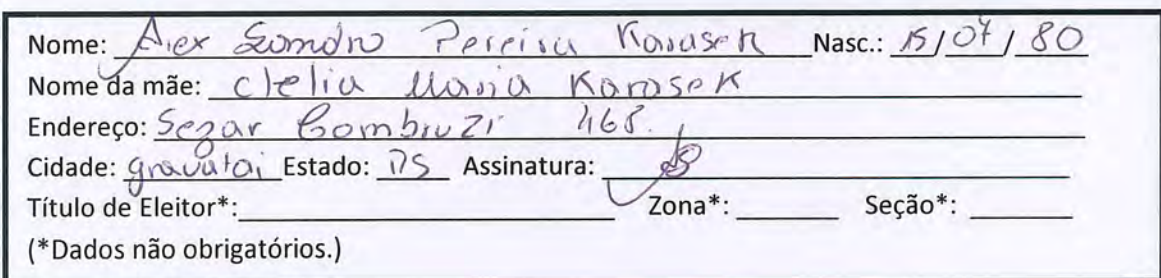 Nome: Alex Sandro Pereira Karasek Nasc.: 15/07/80
Nome da mãe: Clelia Maria Karasek
Endereço: Sezar Bombruzi 468.
Cidade: gravatai Estado: RS Assinatura:
Título de Eleitor*: Zona*: Seção*:
(*Dados não obrigatórios.)